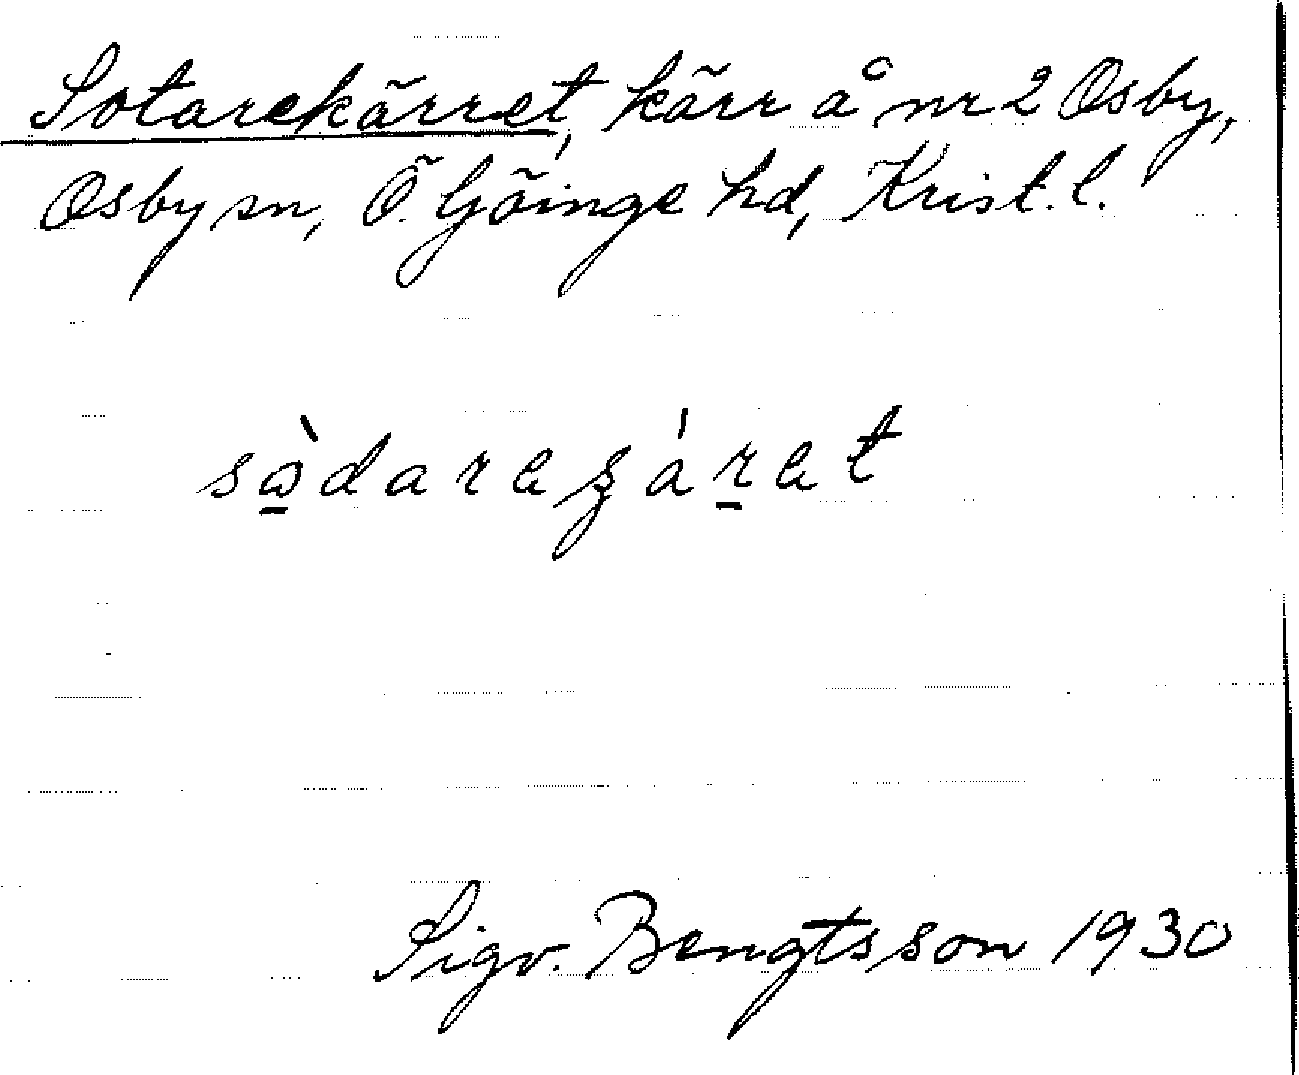 Sotarekärret, kärr å nr 2 Osby,
Osby sn, Ö. Göinge hd, Krist. l.
Sigv. Bengtsson 1930